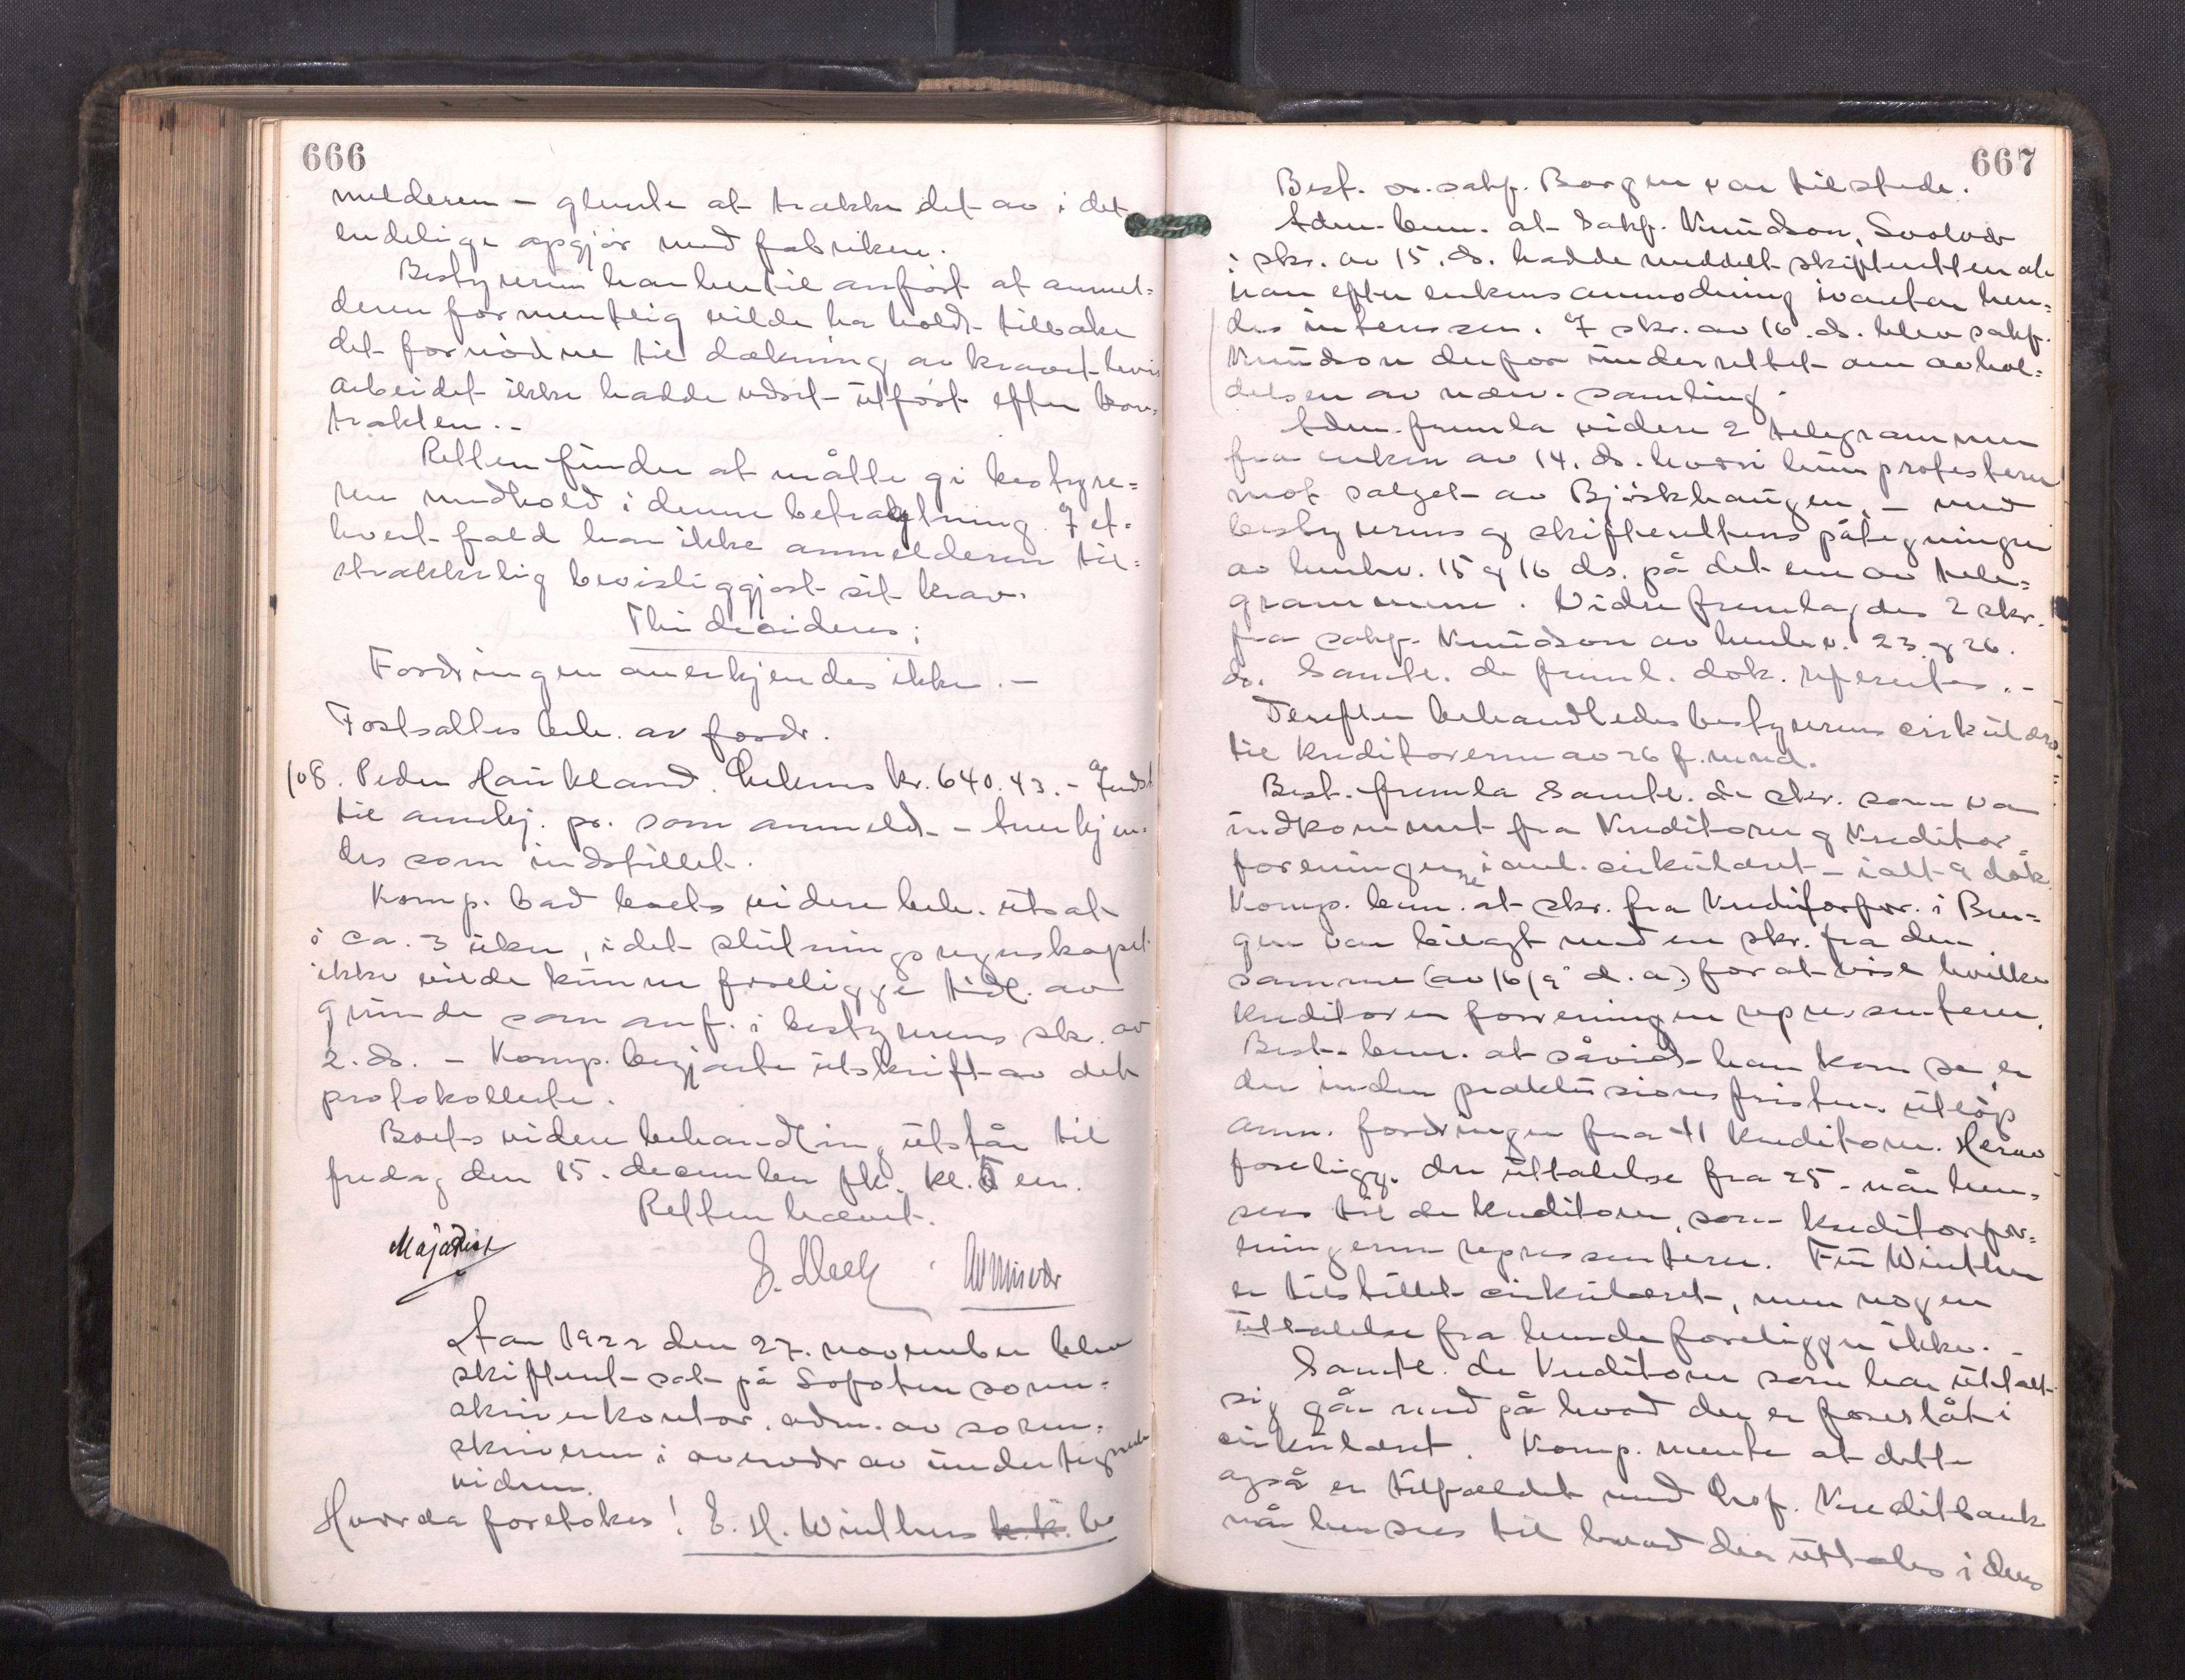 666
melderen - glemte at trække det av i det
endelige opgjör med fabriken.
Bestyreren har hertil anfört at anmel=
deren formentlig vilde ha holdt tilbake
det fornödne til dækning av kravet hvis
arbeidet ikke hadde været utfört efter kon=
trakten. -
Retten finder at måtte gi bestyre=
ren medhold i denne betragtning. I et=
hvert fald har ikke anmelderen til=
strækkelig bevisliggjort sit krav.
Thi decideres:
Fordringen anerkjendes ikke. -
Fortsattes beh. av fordr.
108. Peder Haukland. Leknes kr. 640.43. - Indst.
til anerkj. pr. som anmeldt. - Anerkjen=
des som indstillet.
Komp. bad boets videre beh. utsat
i ca. 3 uker, idet slutningsregnskapet
ikke vilde kunne foreligge tidl. av
grunde som anf. i bestyrerens skr. av
2. ds. - Komp. begjærte utskrift av det
protokollerte.
Boets videre behandling utstår til
fredag den 15. december fk. kl. 5 em.
Retten hævet.
Aar 1922 den 27. november blev
skifteret sat på Lofoten soren=
skriverkontor, adm. av soren=
skriveren i overvær av undertegnede
vidner.
Hvorda foretokes! E. H. Winthers k.k. bo
667
Best. or. sakf. Borgen var tilstede.
Adm. bem. at sakf. Knudson, Svolvær
i skr. av 15. ds. hadde meddelt skifteretten at
han efter enkens anmodning ivaretar hen=
des interesser. I skr. av 16. ds. blev sakf.
Knudson derfor underrettet om avhol=
delsen av nærv. samling.
Adm. fremla videre 2 telegrammer
fra enken av 14. ds. hvori hun protesterer
mot salget av Bjørkhaugen, - med
bestyrerens og skifterettens påtegninger
av henhv. 15 og 16 ds. på det ene av tele=
grammene. Videre fremlagdes 2 skr.
fra sakf. Knudson av henhv. 23. og 26.
ds. Samtl. de freml. dok. refereres. -
Derefter behandledes bestyrerens cirkulære
til kreditorerne av 26 f. mnd.
Best. fremla samtl. de skr. som var
indkommet fra kreditorer og kreditor=
foreningerne i anl. cirkulæret - ialt 9 dok.
Komp. bem. at skr. fra kreditorfor. i Ber=
gen var bilagt med en skr. fra den
samme (av 16/9 d.a.) for at vise hvilke
kreditorer foreningen representerer.
Best. bem. at såvidt han kan se, er
der inden præklusionsfristens utlöp
anm. fordringer fra 41 kreditorer. Herav
foreligg. der uttalelse fra 25 - når hen=
sees til de kreditorer, som kreditorfor=
eningerne representerer. Fru Winther
er tilstillet cirkulæret, men nogen
uttalelse fra hende foreligger ikke. -
Samtl. de kreditorer som har uttalt
sig går med på hvad der er foreslåt i
cirkulæret. Komp. mente at dette
også er tilfældet med Lof. Kreditbank
når hensees til hvad der uttales i dens